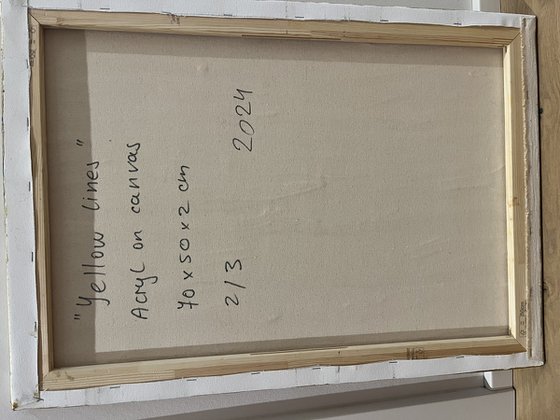 "Yellow lines"
Acryl on canvas
70 x 50 x 2 cm
2/3 2024